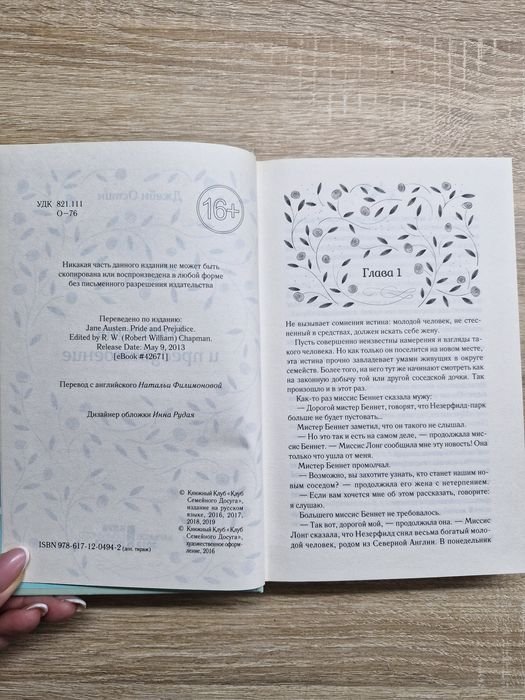 УДК 821.111
О–76
16+
Никакая часть данного издания не может быть
скопирована или воспроизведена в любой форме
без письменного разрешения издательства
Переведено по изданию:
Jane Austen. Pride and Prejudice.
Edited by R. W. (Robert William) Chapman.
Release Date: May 9, 2013
[eBook #42671]
Перевод с английского Натальи Филимоновой
Дизайнер обложки Инна Рудая
© Книжный Клуб «Клуб
Семейного Досуга»,
издание на русском
языке, 2016, 2017,
2018, 2019
© Книжный Клуб «Клуб
Семейного Досуга»,
художественное офор-
мление, 2016
ISBN 978-617-12-0494-2 (доп. тираж)
Глава 1
Не вызывает сомнения истина: молодой человек, не стес-
ненный в средствах, должен искать себе жену.
Пусть совершенно неизвестны намерения и взгляды
такого человека. Но как только он поселится на новом месте,
эта истина прочно завладевает умами живущих в округе
семейств. Более того, на него тут же начинают смотреть как
на законную добычу той или другой соседской дочки. Так
произошло и в этот раз.
Как-то раз миссис Беннет сказала мужу:
— Дорогой мистер Беннет, говорят, что Незерфилд-парк
больше не будет пустовать...
Мистер Беннет заметил, что он такого не слышал.
— Но это так и есть на самом деле, — продолжала мис-
сис Беннет. — Миссис Лонг сообщила мне эту новость! Она
только что ушла от меня.
Мистер Беннет промолчал.
— Возможно, вы захотите узнать, кто станет нашим но-
вым соседом? — продолжила его жена с нетерпением.
— Если вам хочется мне об этом рассказать, говорите:
я слушаю.
Большего миссис Беннет не требовалось.
— Так вот, дорогой мой, — продолжила она. — Миссис
Лонг сказала, что Незерфилд снял весьма богатый моло-
дой человек, родом из Северной Англии. В понедельник